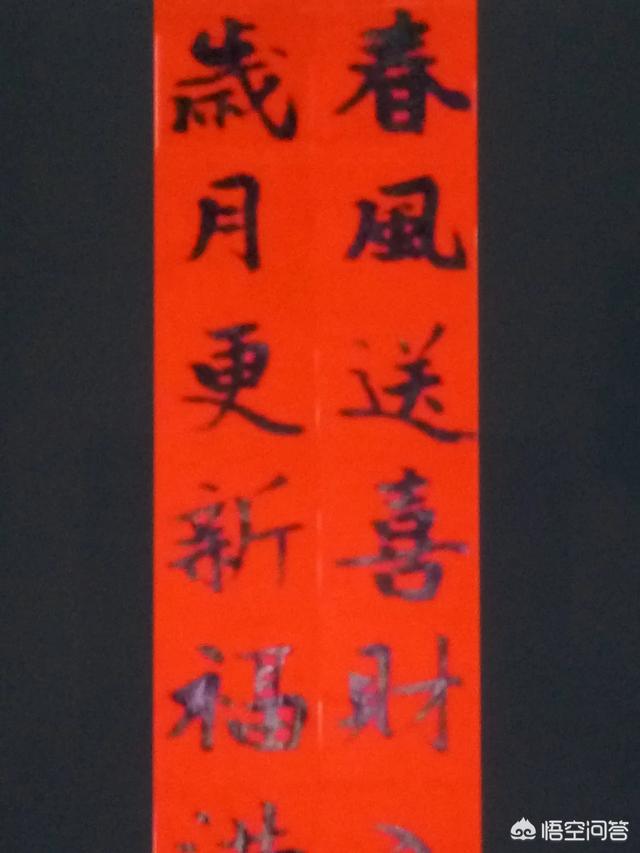 春風送喜財
歲月更新福
悟空问答